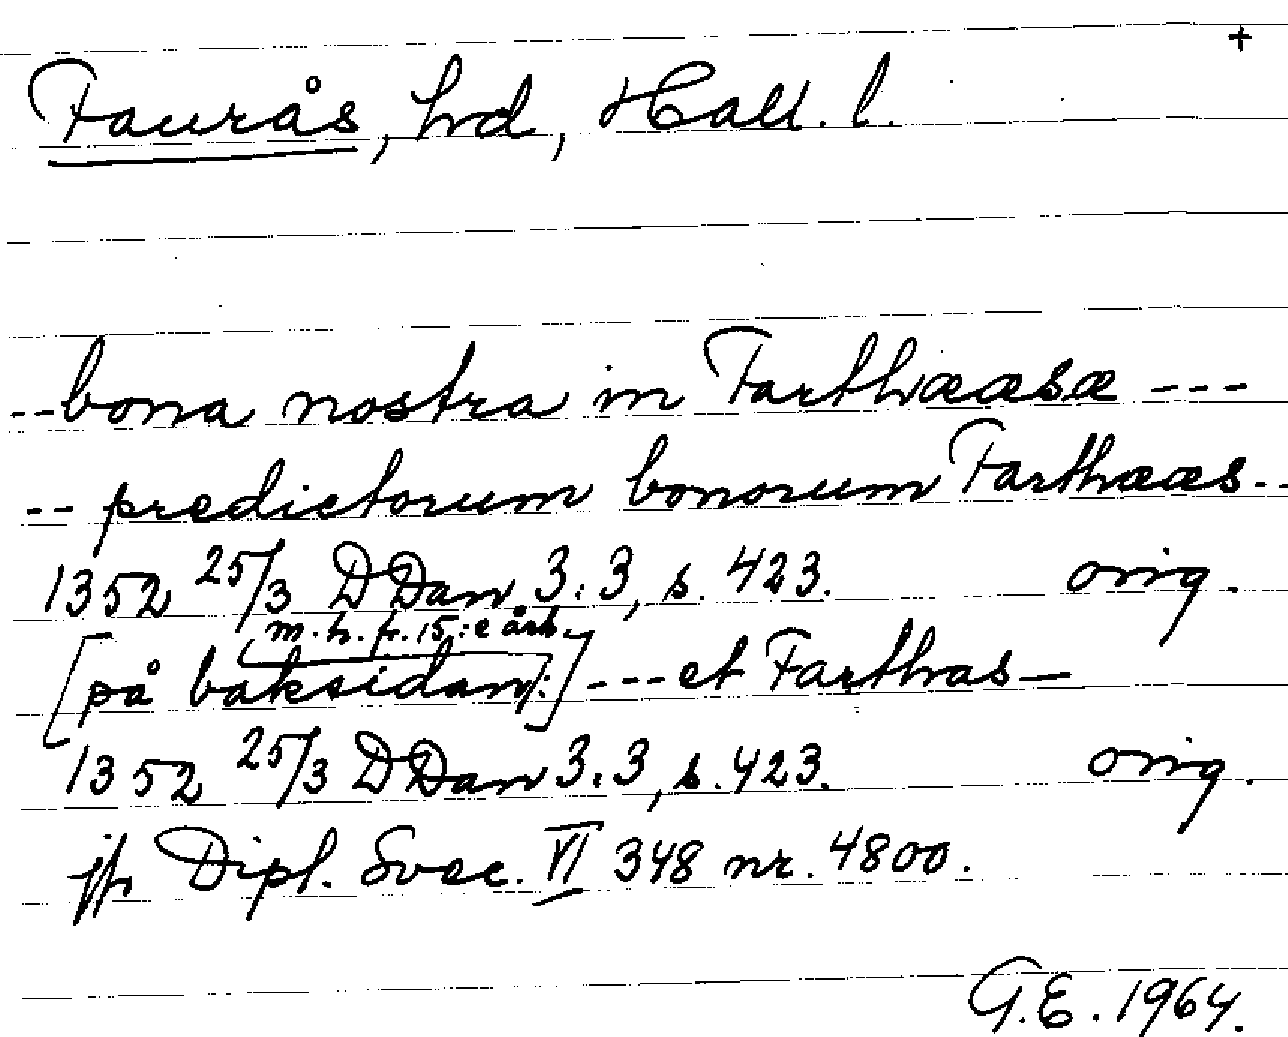 +
Faurås, hd, Hall. l.
-- bona nostra in Farthææsæ ---
-- predictorum bonorum Farthææs --
1352 25/3 DDan 3:3, s. 423. orig.
m. h. fr. 15:e årh.
[på baksidan:] --- et Farthas —
1352 25/3 DDan 3:3, s. 423. orig.
jfr Dipl. Svec. VI 348 nr. 4800.
G.E. 1964.